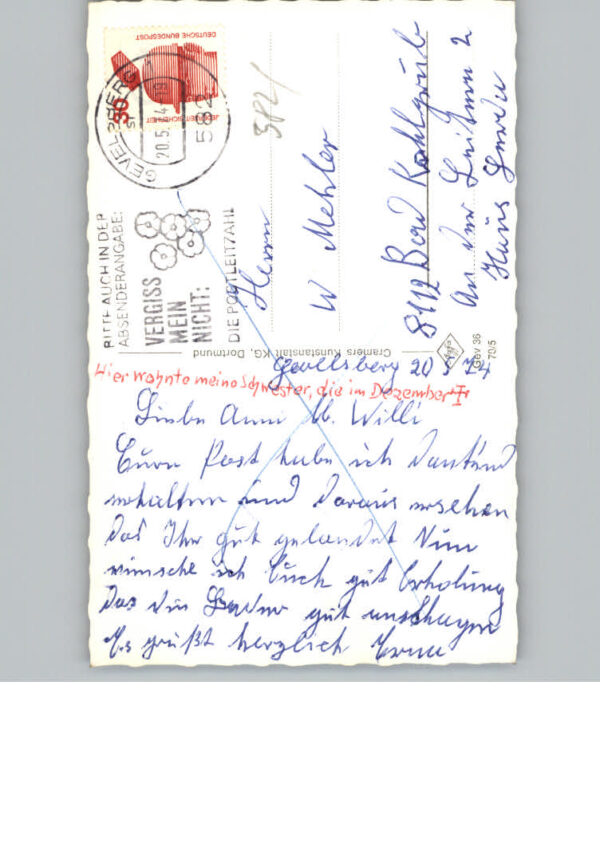 DEUTSCHE BUNDESPOST
30
JEDERZEIT SICHERHEIT
GEVELSBERG 1
20.5.74-19
582
BITTE AUCH IN DER
ABSENDERANGABE:
VERGISS
MEIN
NICHT:
DIE POSTLEITZAHL
Herrn
W Mehler
8112 Bad Kohlgrub
An der Leiten 2
Haus Gerda
Cramers Kunstanstalt KG, Dortmund
Gev 36
70/5
Gevelsberg 20 5 74
Hier wohnte meine Schwester, die im Dezember
Liebe Anni u. Willi
Eure Post habe ich dankend
erhalten und daraus ersehen
das Ihr gut gelandet Nun
wünsche ich Euch gut Erholung
Das die Bäder gut anschlagen
Es grüßt herzlich Erna